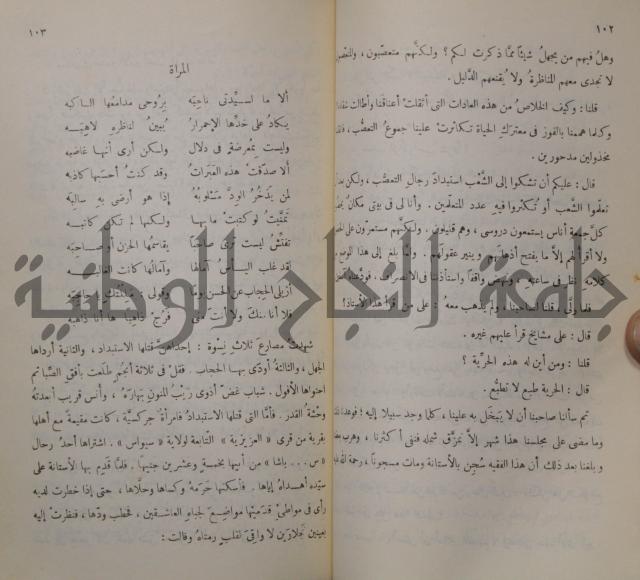 ١٠٢
وهل فيهم من يجهل شيئاً ممّا ذكرت لكم ؟ ولكنّهم متعصّبون ،
لا تجدى معهم المناظرة ولا يقنعهم الدّليل .
قلنا : وكيف الخلاص من هذه العادات التى أثقلت أعناقنا وأطالت
وكلما هممنا بالفوز فى معترك الحياة تكاثرت علينا جموع التعصّب ،
مخذولين مدحورين .
قال : عليكم أن تشكوا إلى الشّعب استبداد رجال التعصّب ، ولكن
تعلّموا الشّعب أو تُكثروا فيه عدد المتعلّمين . وأنا لى فى بيتى مكان
كلّ جمعة أناس يستمعون دروسى ، وهم قليلون . ولكنّهم مستمرّون على
ولا أقرأ لهم إلّا ما يفتح أذهانهم وينير عقولهم . ولمّا بلغ إلى هذا
كلامه نظر فى ساعته ونهض واقفاً واستأذننا فى الانصراف .
فلمّا ولّى ، قلنا لصاحبنا ، ولم يذهب معه : على من قرأ هذا الأستاذ ؟
قال : على مشايخ قرأ عليهم غيره .
قلنا : ومن أين له هذه الحرّية ؟
قال : الحرية طبع لا تطبّع .
ثم سألنا صاحبنا أن لا يبخل به علينا ، كلما وجد سبيلا إليه ؛
وما مضى على مجلسنا هذا شهر إلّا تمزّق شمله فنفى أكثرنا ، وهرب
وبلغنا بعد ذلك أن هذا الفقيه سُجن بالأستانة ومات مسجوناً ، رحمة
١٠٣
المرأة
ألا ما لسيّدتى ناحبه بروحى مدامعها الساكبه
يكاد على خدّها الإحمرار يُبين لناظره لاهبه
وليست بمعرضة فى دلال ولكن أرى أنها غاضبه
ألا صدقت هذه العبرات وقد كنت أحسبها كاذبه
لمن يذخر الودّ مسلوبه إذا هو أرضى به سالبه
تمنّيت لو كتبت ما بها ولكنها لم تكن كاتبه
تفتّش ليست ترى صاحباً يقاسمها الحزن أو صاحبه
لقد غلب اليأس آمالها وآمالها كانت الغالبه
أزيلى الحجاب عن الحسن
فلا أنا منك ولا أنت منى
شهدت مصارع ثلاث نسوة : إحداهنّ قتلها الاستبداد ، والثانية أرداها
الجهل ، والثالثة أودى بها الحجاب . فقل فى ثلاثة أنجم طلعت بأفق الصّبا ثم
احتواها الأفول . شباب غضّ أذوى ريب المنون بهاره ، وأنس قريب أبعدته
وحشة القدر . فأمّا التى قتلها الاستبداد فامرأة جركسيّة ، كانت مقيمة مع أهلها
بقرية من قرى « العزيزية » التابعة لولاية « سيواس » . اشتراها أحد رجال
« س . . . باشا » من أبيها بخمسة وعشرين جنيهاً . فلمّا قدم بها الأستانة على
سيّده أهداه إياها . فأسكنها حرمه وكساها وحلّاها ، حتى إذا خطرت لديه
رأى فى مواطئ قدميها مواضع لجباه العاشقين ، فخطب ودّها ، فنظرت إليه
بعينين نجلاوين لا واقى لقلب رمتاه وقالت :
جامعة النجاح الوطنية